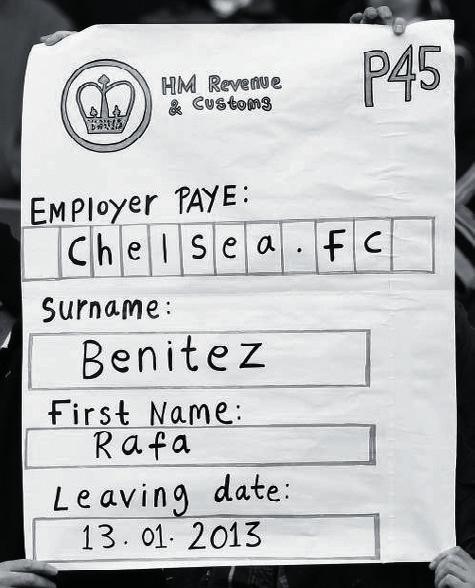 HM Revenue
& Customs
P45
EMPloyer PAYE:
Chelsea.FC
Surname:
Benitez
First Name:
Rafa
Leaving date:
13.01.2013